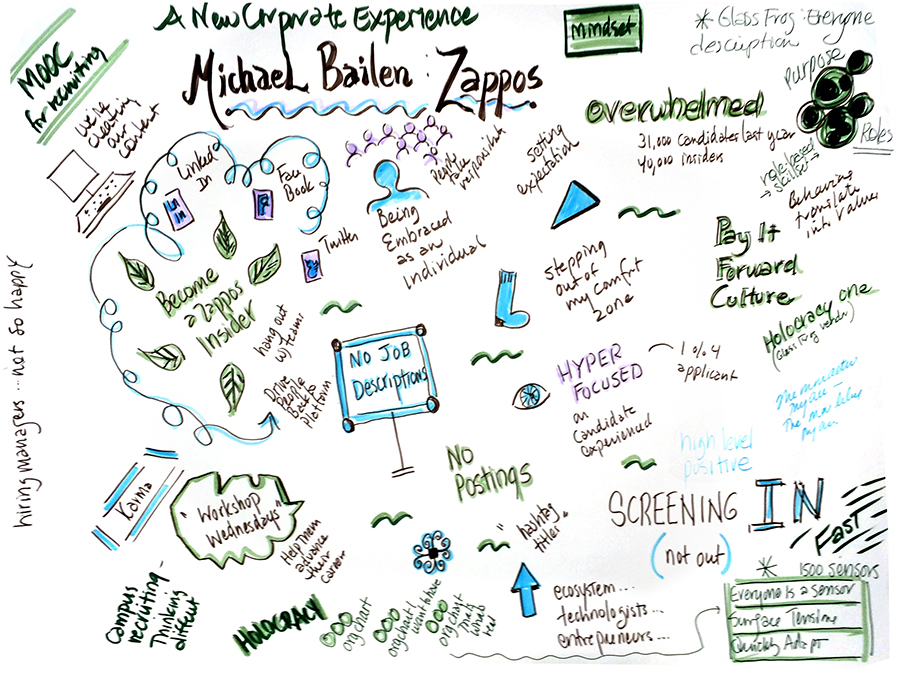 A New Corporate Experience
Michael Bailen: Zappos
mindset
* Glass Frog: Everyone
description
MOOC
for recruiting
we're
creating
our
content
purpose
Roles
Overwhelmed
31,000 candidates last year
40,000 insiders
role based
skillset
Behaviors
translate
into Values
Linked
In
Face
Book
Twitter
Become
a Zappos
Insider
hang out
w/teams
Drive
People
Back to
Platform
People
take
responsibility
Being
Embraced
as an
Individual
setting
expectation
Stepping
out of
my comfort
zone
Pay It
Forward
Culture
Holocracy one
(Glass Frog vendor)
hiring managers...not so happy
No Job
Descriptions
HYPER
FOCUSED
on
candidate
experienced
1% 4
applicant
high level
positive
No
Postings
SCREENING IN
(not out)
FAST
Karma
"Workshop
Wednesdays"
Help them
advance
their
career
"hashtag
titles"
* 1500 sensors
Everyone is a sensor
Surface Tensions
Quickly Adapt
Campus
recruiting-
Thinking
different
HOLOCRACY
org chart
org chart I
want to have
org chart
ecosystem...
technologists...
entrepreneurs...